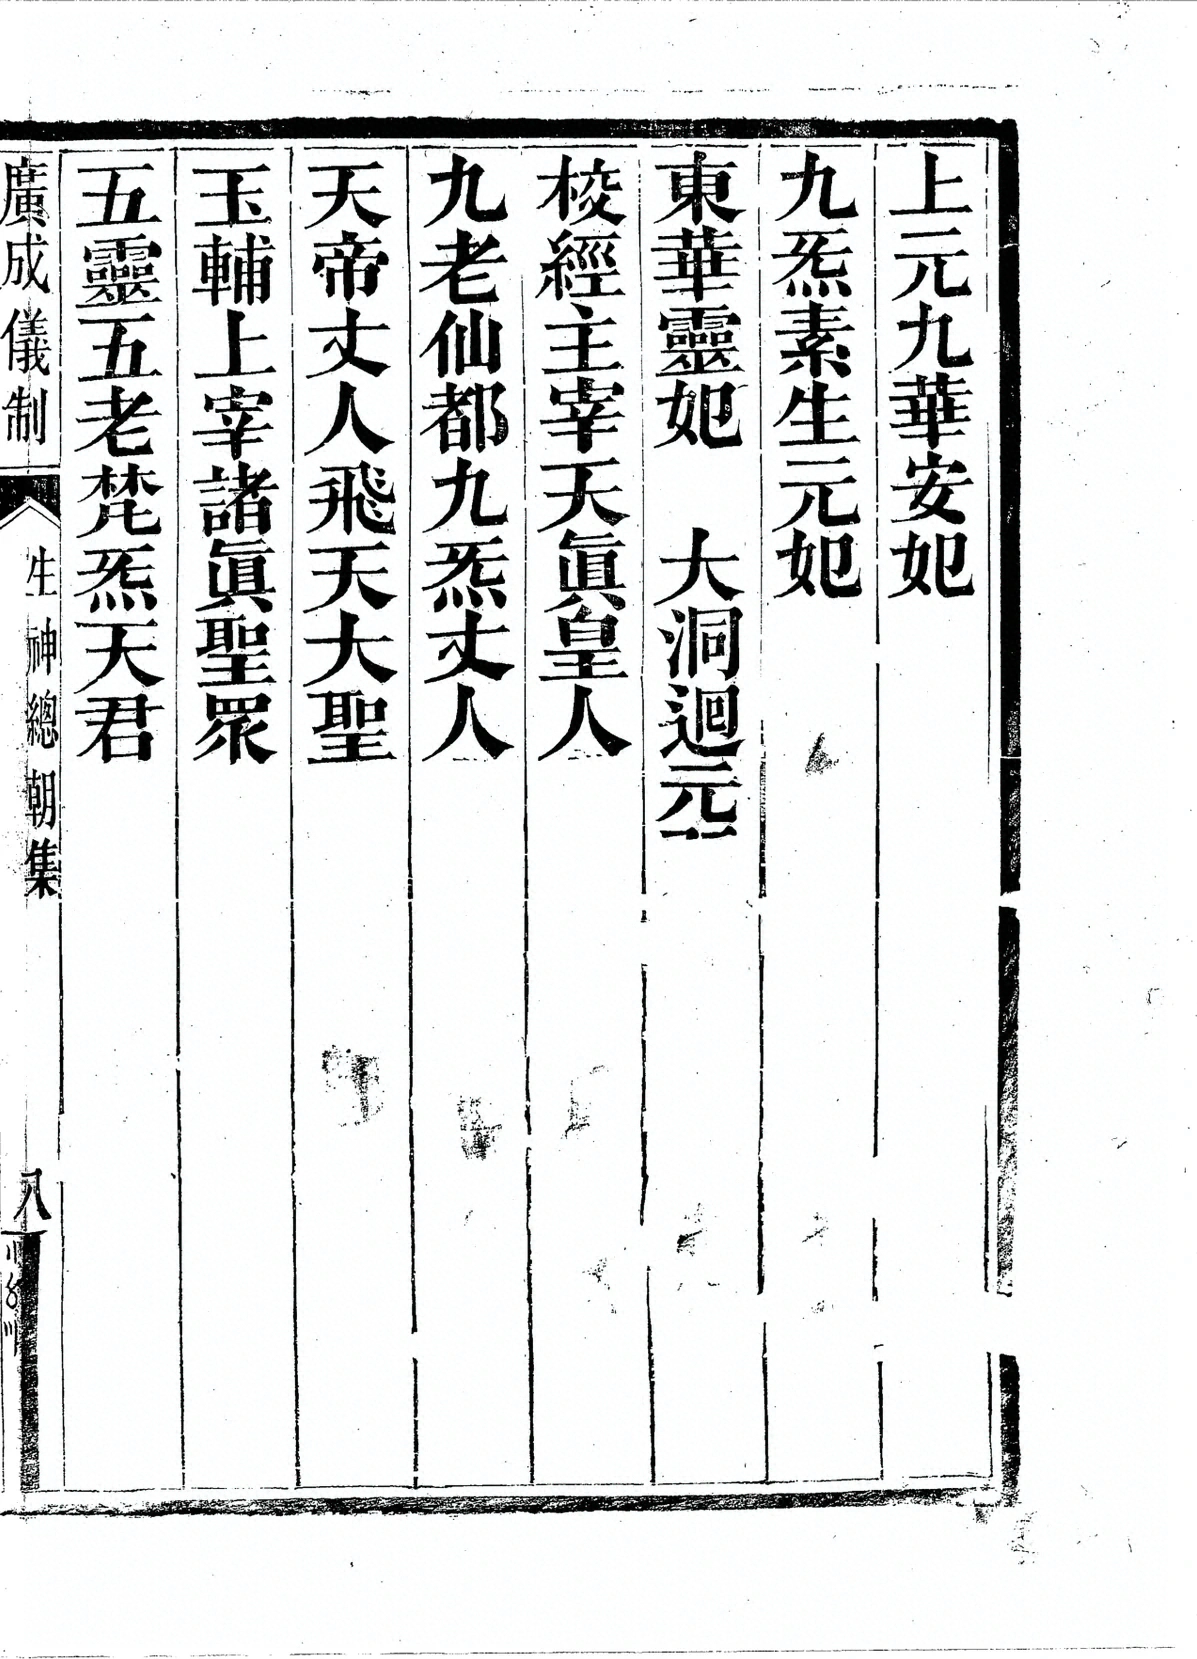 上元九華安妃
九炁素生元妃
東華靈妃　大洞迴元
校經主宰天眞皇人
九老仙都九炁丈人
天帝丈人飛天大聖
玉輔上宰諸眞聖眾
五靈五老梵炁天君
廣成儀制
生神總朝集
八